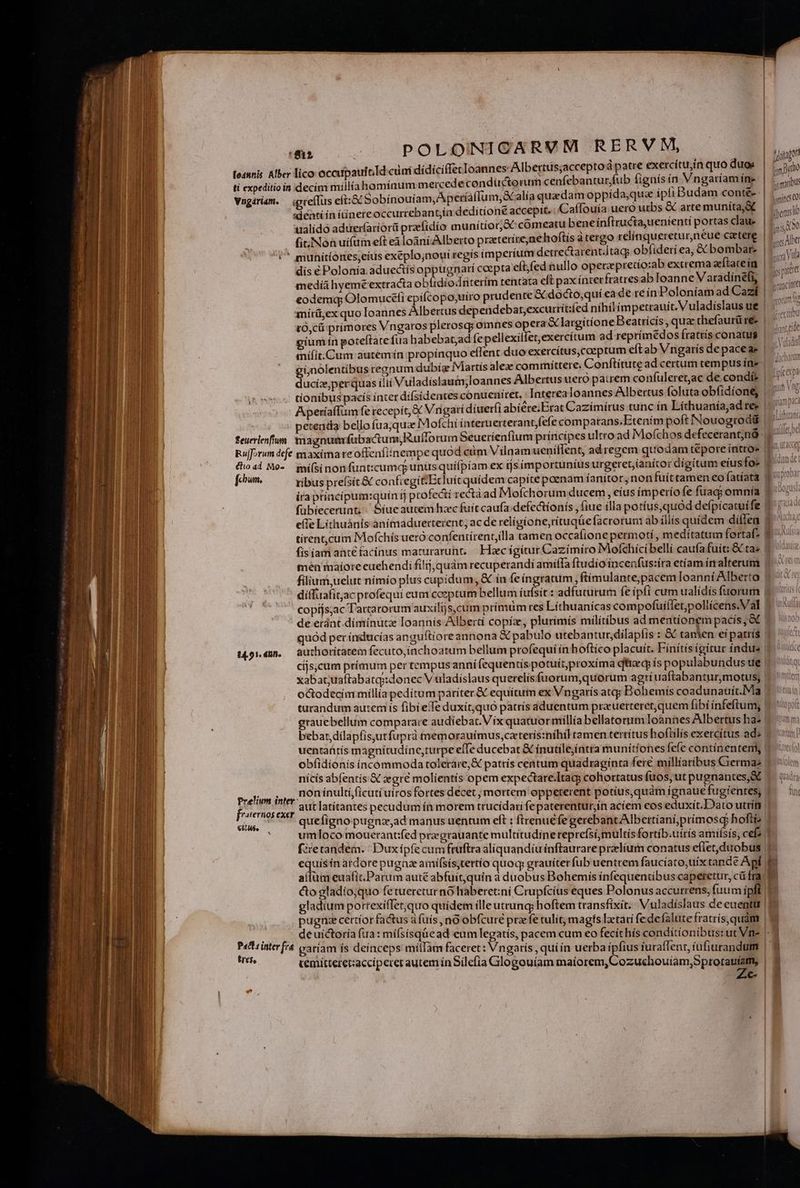 612 POLONICARVM RERVM,
Ioannis Alber lico occupauit. Id cùm didicisset Ioannes Albertus, accepto à patre exercitu, in quo duo
ti expeditio in decim millia hominum mercede conductorum censebantur, sub signis in Vngariam in
Vngariam. gressus est: & Sobinouiam, Aperiassum, & alia quædam oppida, quæ ipsi Budam conte
denti in itinere occurrebant, in deditionē accepit. Cassouia uero urbs & arte munita, &
ualido aduersariorū præsidio munitior, & cōmeatu bene instructa, uenienti portas clau
sit. Non uisum est ea Ioāni Alberto præterire, ne hostis à tergo relinqueretur, néue cæteræ
munitiones, eius exēplo, noui regis imperium detrectarent. Itaq; obsideri ea, & bombar
dis è Polonia aductis oppugnari cœpta est, sed nullo operæprecio: ab extrema æstate in
mediā hyemē extracta obsidio. Interim tentata est pax inter fratres ab Ioanne Varadinēsi,
eodemq; Olomucēsi episcopo, uiro prudente & docto, qui ea de re in Poloniam ad Cazi
mirū, ex quo Ioannes Albertus dependebat, excurrit: sed nihil impetrauit. Vuladislaus ue
rò, cū primores Vngaros plerosq; omnes opera & largitione Beatricis, quæ thesaurū re
gium in potestate sua habebat, ad se pellexisset, exercitum ad reprimēdos fratris conatus
misit. Cum autem in propinquo essent duo exercitus, cœptum est ab Vngaris de pace a
gi, nolentibus regnum dubiæ Martis aleæ committere. Constitute ad certum tempus in
duciæ, per quas illi Vuladislaum, Ioannes Albertus uerò patrem consuleret, ac de condi
tionibus pacis inter dissidentes conueniret. Interea Ioannes Albertus soluta obsidione,
Aperiassum se recepit, & Vngari diuersi abiére. Erat Cazimirus tunc in Lithuania, ad re
petenda bello sua, quæ Moschi interuerterant, sese comparans. Etenim post Nouogrodū
Seueriensium magnum subactum, Russorum Seueriensium principes ultro ad Moschos defecerant, nō
Russorum defe maxima re offensi: nempe quòd cùm Vilnam uenissent, ad regem quodam tēpore intro
ctio ad Mo missi non sunt: cumq; unus quispiam ex ijs importunius urgeret, ianitor digitum eius fo
schum. ribus presit & confregit. Et luit quidem capite pœnam ianitor, non fuit tamen eo satiata
ira principum: quin ij profecti rectà ad Moschorum ducem, eius imperio se suaq; omnia
subiecerunt. Siue autem hæc fuit causa defectionis, siue illa potius, quòd despicatui se
esse Lithuanis animaduerterent, ac de religione, rituqúe sacrorum ab illis quidem dissen
tirent, cum Moschis uerò consentirent, illa tamen occasione permoti, meditatum fortas
sis iam antè facinus maturarunt. Hæc igitur Cazimiro Moschici belli causa fuit: & ta
men maiore euehendi filij, quàm recuperandi amissa studio incensus: ira etiam in alterum
filium, uelut nimio plus cupidum, & in se ingratum, stimulante, pacem Ioanni Alberto
dissuasit, ac prosequi eum cœptum bellum iussit: adfuturum se ipsi cum ualidis suorum
copijs, ac Tartarorum auxilijs, cùm primùm res Lithuanicas composuisset, pollicens. Val
de erant diminutæ Ioannis Alberti copiæ, plurimis militibus ad mentionem pacis, &
quòd per inducias angustiore annona & pabulo utebantur, dilapsis: & tamen ei patris
1491. ann. authoritatem secuto, inchoatum bellum prosequi in hostico placuit. Finitis igitur indu
cijs, cum primùm per tempus anni sequentis potuit, proxima quæq; is populabundus ue
xabat, uastabatq;: donec Vuladislaus querelis suorum, quorum agri uastabantur, motus,
octodecim millia peditum pariter & equitum ex Vngaris atq; Bohemis coadunauit. Ma
turandum autem is sibi esse duxit, quò patris aduentum præuerteret, quem sibi infestum,
graue bellum comparare audiebat. Vix quatuor millia bellatorum Ioannes Albertus ha
bebat, dilapsis, ut suprà memorauimus, cæteris: nihil tamen territus hostilis exercitus ad
uentantis magnitudine, turpe esse ducebat & inutile, intra munitiones sese continentem,
obsidionis incommoda tolerare, & patris centum quadraginta ferè milliaribus Germa
nicis absentis & ægrè molientis opem expectare. Itaq; cohortatus suos, ut pugnantes, &
non inulti, sicuti uiros fortes decet, mortem oppeterent potius, quàm ignaue fugientes,
Prælium inter aut latitantes pecudum in morem trucidari se paterentur, in aciem eos eduxit. Dato utrin
fraternos exer quesigno pugnæ, ad manus uentum est: strenuè se gerebant Albertiani, primosq; hosti
citus. um loco mouerant: sed prægrauante multitudine represi, multis fortib. uiris amissis, ces
sere tandem. Dux ipse cum frustra aliquandiu instaurare prælium conatus esset, duobus
equis in ardore pugnæ amissis, tertio quoq; grauiter sub uentrem sauciato, uix tandē Api
assum euasit. Parum autē abfuit, quin à duobus Bohemis insequentibus caperetur, cū fra
cto gladio, quo se tueretur nō haberet: ni Crupscius eques Polonus accurrens, suum ipsi
gladium porrexisset, quo quidem ille utrunq; hostem transfixit. Vuladislaus de euentu
pugnæ certior factus à suis, nō obscurè præ se tulit, magis lætari se de salute fratris, quàm
de uictoria sua: missisqúe ad eum legatis, pacem cum eo fecit his conditionibus: ut Vn
Pacta inter fra gariam is deinceps missam faceret: Vngaris, qui in uerba ipsius iurassent, iusiurandum
tres. remitteret: acciperet autem in Silesia Glogouiam maiorem, Cozuchouiam, Sprotauiam,
Ze-